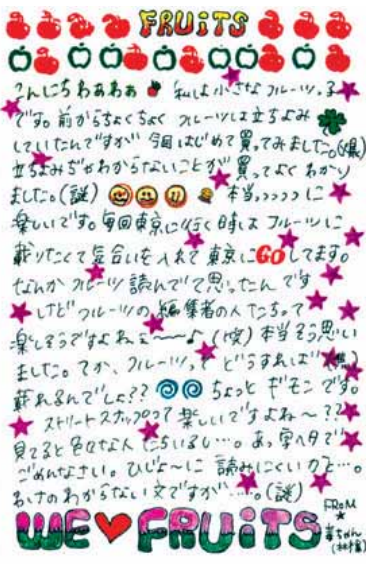 FRUiTS
こんにちわぁぁぁ 私は小さなフルーツ。子
です。前からちょくちょく フルーツは立ちよみ
していたんですが 今回はじめて買ってみました。(爆)
立ちよみぢゃわからないことが 買ってよくわかり
ました。(謎) 本当っっっっに
楽しいです。毎回東京に行く時は フルーツに
載りたくて気合いを入れて 東京にGOしてます。
なんか フルーツ 読んでて思ったんです
けど フルーツの 編集者の人たちって
楽しそうですよねぇ〜〜♪ (笑) 本当そう思い
ました。てか、フルーツって どうすれば
載れるんでしょ?? ちょっと ギモンです。
ストリートスナップって 楽しいですよね〜??
見てると色々な人たちいるし…。あっ字ヘタで
ごめんなさい。ひじょ〜に 読みにくいカと…。
わけのわからない文ですが……。(謎)
FRoM
WE♥FRUiTS
ちゃん